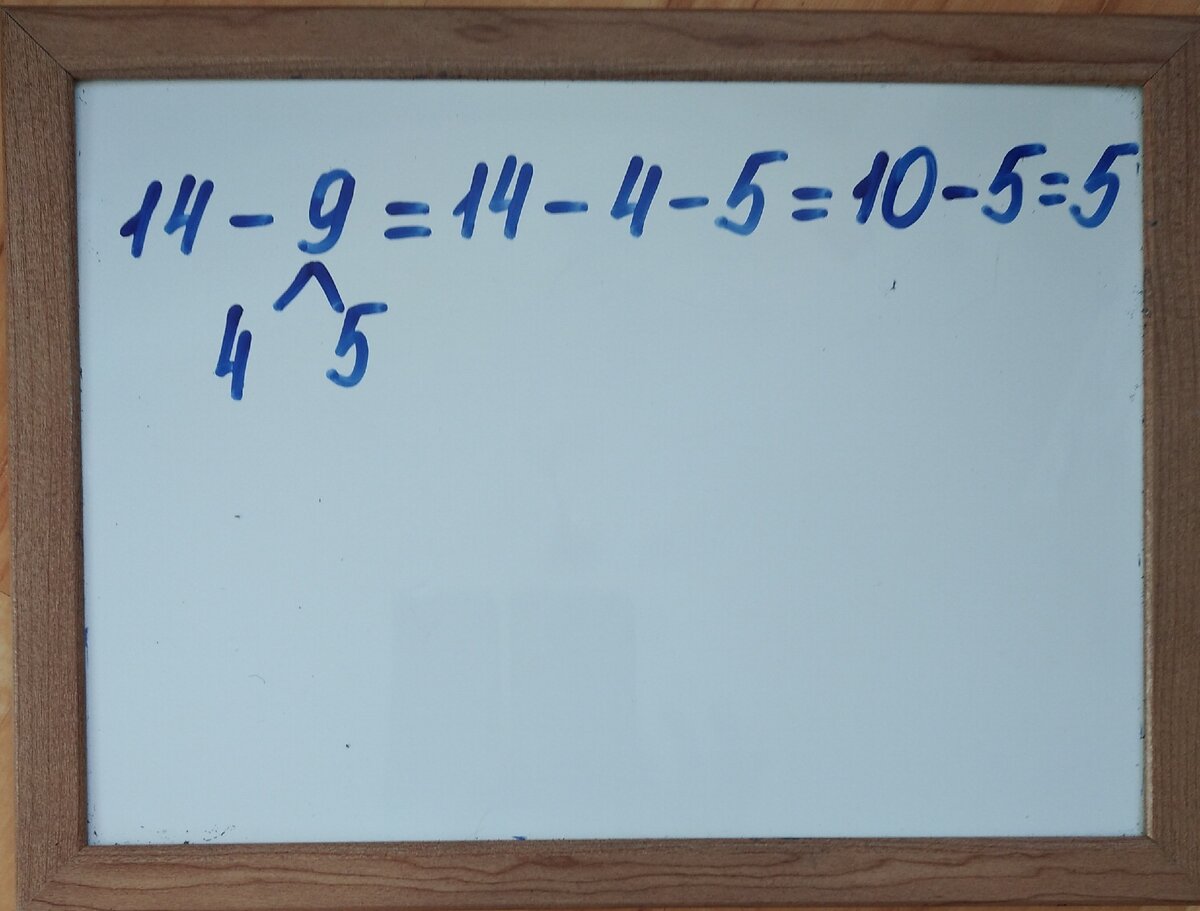 14 - 9 = 14 - 4 - 5 = 10 - 5 = 5
4 5